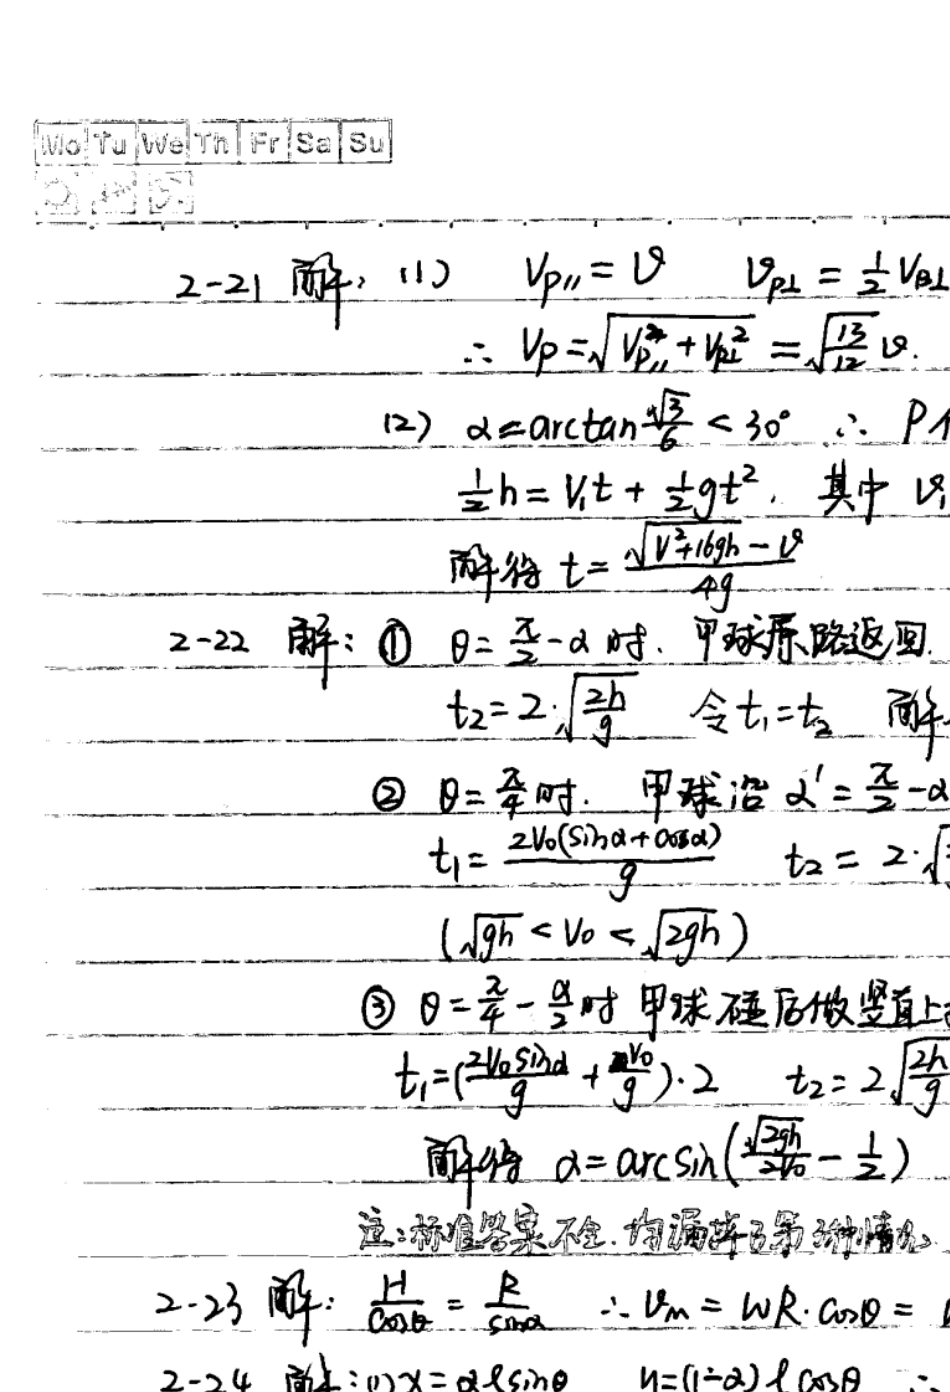 Mo Tu We Th Fr Sa Su
2-21 解: (1) V_P// = v v_P⊥ = 1/2 V_B⊥
∴ V_P = √(V_P//² + V_P⊥²) = √(13/12) v.
(2) α = arctan √3/6 < 30° ∴ P
1/2 h = V₁t + 1/2 gt². 其中 v₁
解得 t = (√(V²+16gh) - v)/4g
2-22 解: ① θ = π/2 - α 时. 甲球原路返回.
t₂ = 2·√(2h/g) 令 t₁ = t₂ 解
② θ = π/4 时. 甲球沿 α' = π/2 - α
t₁ = 2V₀(sinα + cosα)/g t₂ = 2·√
(√gh < V₀ < √2gh)
③ θ = π/4 - α/2 时 甲球碰后做竖直上
t₁ = (2V₀sinα/g + V₀/g)·2 t₂ = 2√(2h/g)
解得 α = arcsin(√2gh/2V₀ - 1/2)
注: 标准答案不全. 均漏掉了第3种情况
2-23 解: H/cosθ = R/sinα ∴ v_m = ωR·cosθ =
2-24 解: (1) x = αℓsinθ y = (1-α)ℓcosθ ∴